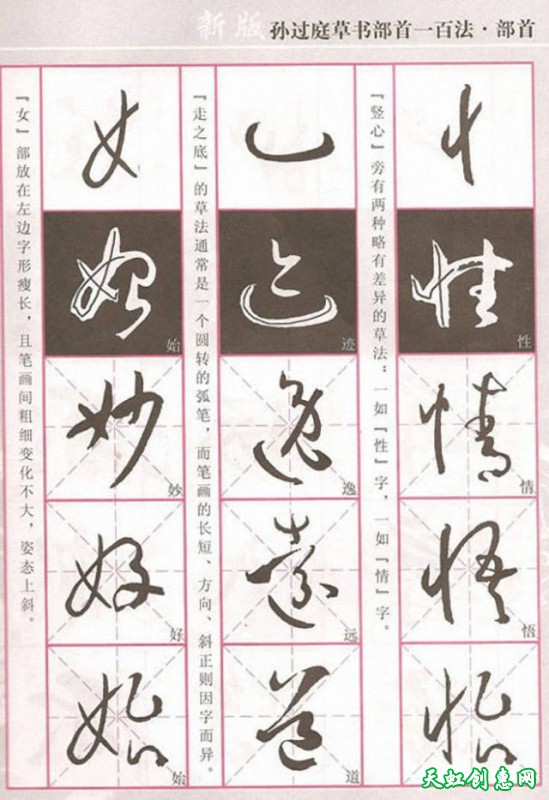 新版 孙过庭草书部首一百法·部首
『竖心』旁有两种略有差异的草法：一如『性』字，一如『情』字。
性
情
悟
『走之底』的草法通常是一个圆转的弧笔，而笔画的长短、方向、斜正则因字而异。
迹
逸
远
道
『女』部放在左边字形瘦长，且笔画间粗细变化不大，姿态上斜。
始
妙
好
始
天虹创惠网